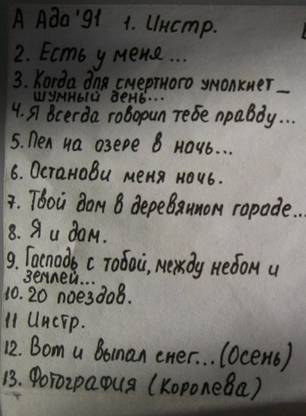 А Ада'91 1. Инстр.
2. Есть у меня...
3. Когда для смертного умолкнет_
шумный день...
4. Я всегда говорил тебе правду...
5. Пел на озере в ночь...
6. Останови меня ночь.
7. Твой дом в деревянном городе...
8. Я и дом.
9. Господь с тобой, между небом и
землей...
10. 20 поездов.
11 Инстр.
12. Вот и выпал снег...(Осень)
13. Фотография (Королева)